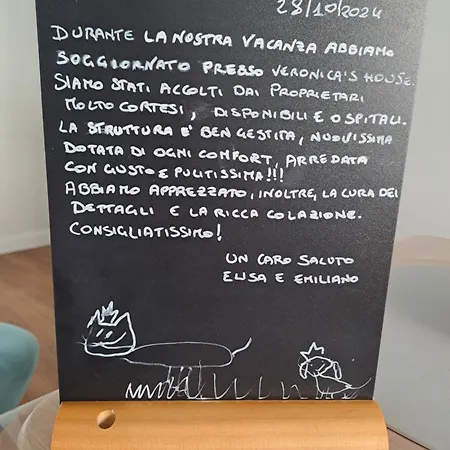 28/10/2024
DURANTE LA NOSTRA VACANZA ABBIAMO
SOGGIORNATO PRESSO VERONICA'S HOUSE.
SIAMO STATI ACCOLTI DAI PROPRIETARI
MOLTO CORTESI, DISPONIBILI E OSPITALI.
LA STRUTTURA E' BEN GESTITA, NUOVISSIMA
DOTATA DI OGNI COMFORT, ARREDATA
CON GUSTO E PULITISSIMA!!!
ABBIAMO APPREZZATO, INOLTRE, LA CURA DEI
DETTAGLI E LA RICCA COLAZIONE.
CONSIGLIATISSIMO!
UN CARO SALUTO
ELISA E EMILIANO